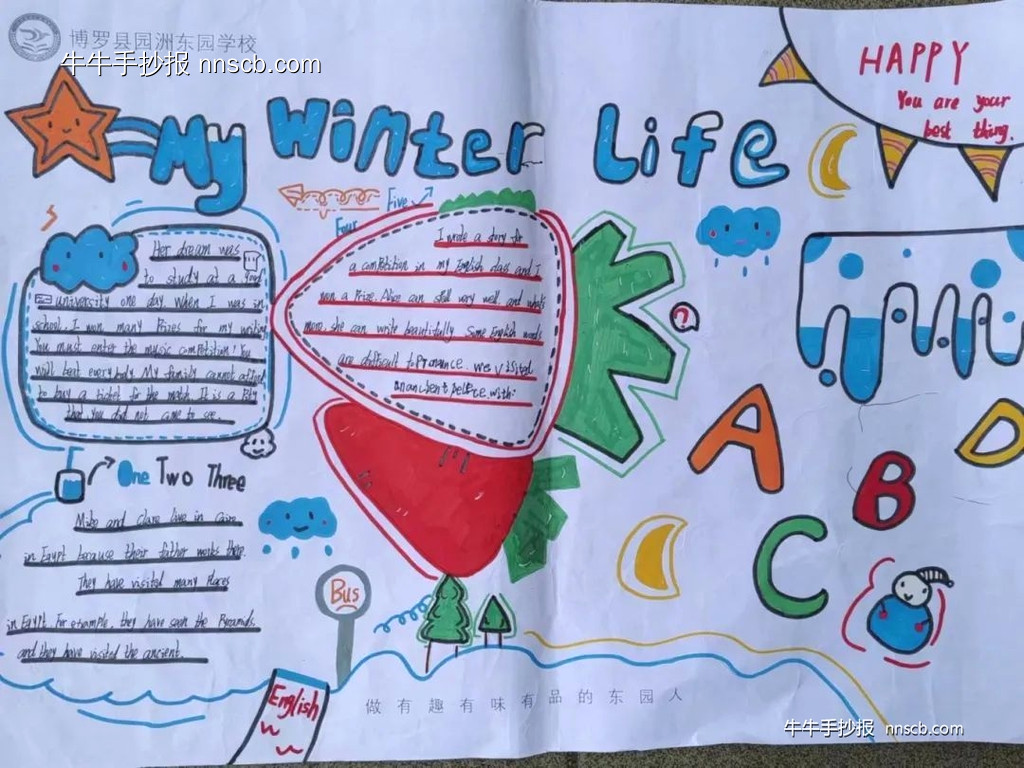 博罗县园洲东园学校
牛牛手抄报 nnscb.com
HAPPY
You are your
best thing.
My Winter Life
Five
Four
Her dream was
to study at a good
university one day. When I was in
school, I won many Prizes for my writing
You must enter the music competition! You
will beat everybody My family cannot afford
to buy a ticket for the match. It is a Pity
that you did not come to see
I wrote a story for
a competition in my English class and I
won a Prize. Alice can spell very well, and what's
more, she can write beautifully Some English words
are difficult to Pronance. we visited
an ancient
with
?
One Two Three
Mike and Clare live in Cairo
in Egypt because their father works there.
They have visited many Places
in Egypt. For example, they have seen the Pyramids.
and they have visited the ancient.
A
B
C
D
Bus
English
做有趣有味有品的东园人
牛牛手抄报 nnscb.com